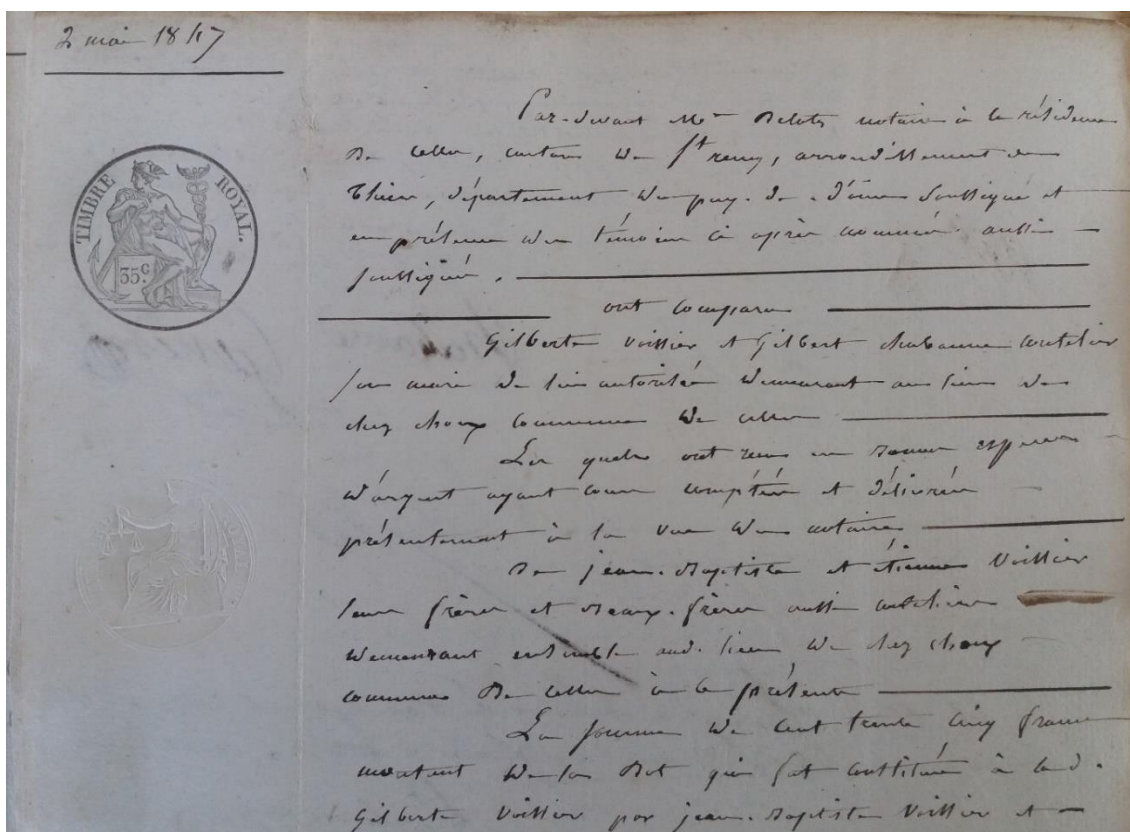 2 mai 1847
TIMBRE ROYAL.
35 c.
Par-devant Me notaire à la résidence
De celles, canton De St remy, arrondissement de
thiers, département Du puy-de-dôme soussigné et
en présence Des témoins ci après nommés aussi
soussignés.
ont comparu
Gilberte Voissier et Gilbert chabanne coutelier
son mari de lui autorisée Demeurant au lieu de
chez choux commune De celles
Les quels ont reçu en Bonnes espèces
D'argent ayant cours comptées et délivrées
présentement à la vue Du notaire
De jean-Baptiste et étienne Voissier
leurs frères et Beaux-frères aussi couteliers
Demeurant ensemble aud. lieu De chez choux
commune De celles à ce présents
La somme De cent trente cinq francs
montant De la Dot qui fut constituée à lad.
Gilberte Voissier par jean-Baptiste Voissier et